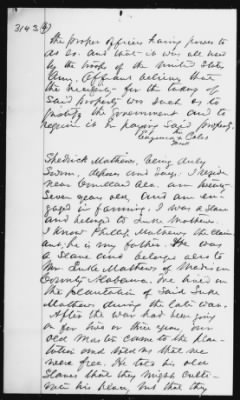 3143 (4)
the proper officers having power to
do so. and that it was all used
by the troops of the United States
Army. Affiant believes that
the necessity for the taking of
said property was such as to
justify the Government and to
require it in paying said property.
Edgeworth Coles
Shedrick Mathews, being duly
sworn, deposes and says: I reside
near Ala. am twenty
seven years old, and am en-
gaged in farming. I was a slave
and belonged to Luke Mathews.
I know Phillip Mathews the claim
ant; he is my father. He was
a slave and belonged also to
Mr. Luke Mathews of Madison
County Alabama. We lived on
the plantation of said Luke
Mathews during the late war.
After the war had been going
on for two or three years, our
old Master came to the plan-
tation and told us that we
were free. He told his old
slaves that they might culti-
vate his place, but that they